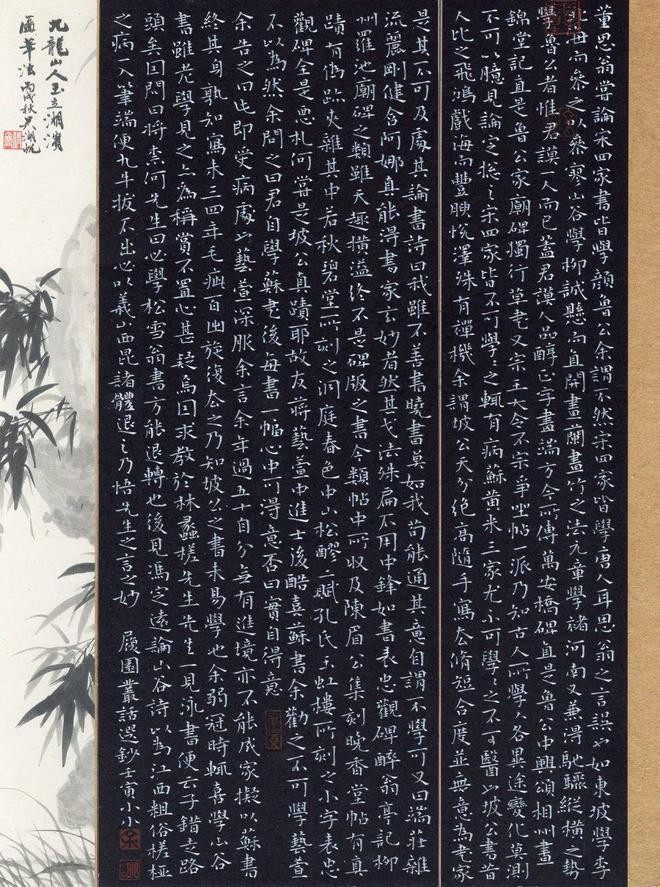 董思翁嘗論宋四家書皆學顏魯公余謂不然宋四家皆學唐人耳思翁之言誤也如東坡學李
北海而參之以參寥山谷學柳誠懸而直開畫蘭畫竹之法元章學褚河南又兼得馳驟縱橫之勢
學魯公者惟君謨一人而已蓋君謨人品醇正字畫端方今所傳萬安橋碑直是魯公中興頌相州晝
錦堂記直是魯公家廟碑獨行草書又宗王大令不宗爭坐帖一派乃知古人所學人各異途變化莫測
不可以臆見論定總之宋四家皆不可學學之輒有病蘇黃米三家尤不可學學之不可醫也坡公書昔
人比之飛鴻戲海而豐腴悅澤殊有禪機余謂坡公天分絕高隨手寫去脩短合度並無意為書家
是其不可及處其論書詩曰我雖不善書曉書莫如我苟能通其意自謂不學可又曰端莊雜
流麗剛健含阿娜真能得書家玄妙者然其戈法殊扁不用中鋒如書表忠觀碑醉翁亭記柳
州羅池廟碑之類雖天趣橫溢終不是碑版之書今類帖中所收及陳眉公集刻晚香堂帖有真
蹟有偽跡夾雜其中若秋碧堂所刻之洞庭春色中山松醪二賦孔氏玉虹樓所刻之小字表忠
觀碑全是惡札何嘗是坡公真蹟耶故友蔣藝萱中進士後酷喜蘇書余勸之不可學藝萱
不以為然余問之曰君自學蘇書後每書一幅心中可得意否曰實自得意
余告之曰此即受病處也藝萱深服余言余年過五十自分無有進境亦不能成家擬以蘇書
終其身孰知寫未三四年毛疵百出旋復去之乃知坡公之書未易學也余弱冠時輒喜學山谷
書雖老學見之亦為稱賞不置心甚疑焉因求教於林蠡槎先生先生一見泳書便云子錯走路
頭矣因問曰將奈何先生曰必學松雪翁書方能退轉也後見馮定遠論山谷詩以為江西粗俗槎枒
之病一入筆端便九牛拔不出必以義山西昆諸體退之乃悟先生之言之妙 履園叢話選鈔壬寅小小
九龍山人玉立湖濱
圖筆法丙戌秋吳湖帆